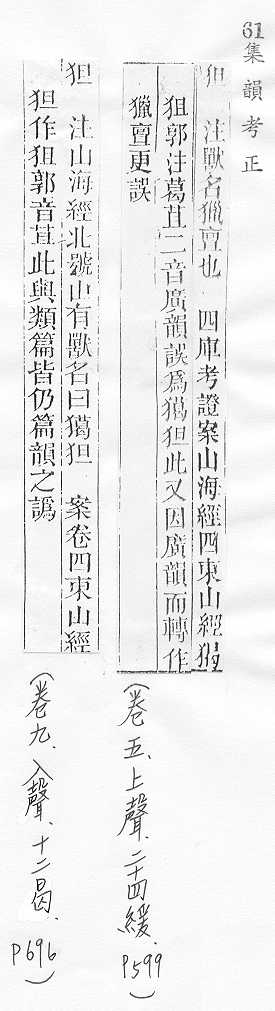 61集韻考正
狚 注獸名獵亶也 四庫考證案山海經四東山經猲
狙郭注葛苴二音廣韻誤爲獦狚此又因廣韻而轉作
獵亶更誤
(卷五、上聲、二十四緩、P599)
狚 注山海經北號山有獸名曰獦狚 案卷四東山經
狚作狙郭音苴此與類篇皆仍篇韻之譌
(卷九、入聲、十二曷、P696)